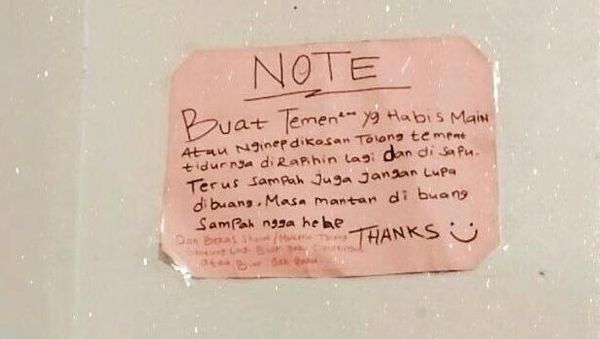 NOTE
Buat Temen² yg Habis Main
Atau Nginep dikosan Tolong tempat
tidurnya dirapihin lagi dan di sapu.
Terus sampah juga jangan lupa
dibuang. Masa mantan di buang
Sampah ngga hehe
THANKS
Dan Bekas
Buat
Atau Buat